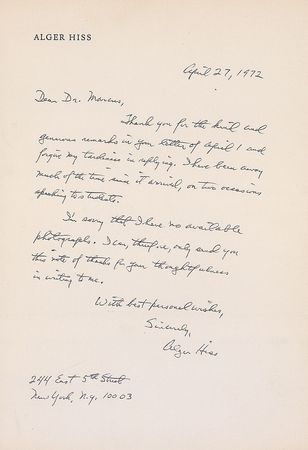 ALGER HISS
April 27, 1972
Dear Dr. Marcus,
Thank you for the kind and
generous remarks in your letter of April 1 and
forgive my tardiness in replying. I have been away
much of the time since it arrived, on two occasions
speaking to students.
I'm sorry that I have no available
photographs. I can, therefore, only send you
this note of thanks for your thoughtfulness
in writing to me.
With best personal wishes,
Sincerely,
Alger Hiss
244 East 5th Street
New York, N.Y. 10003